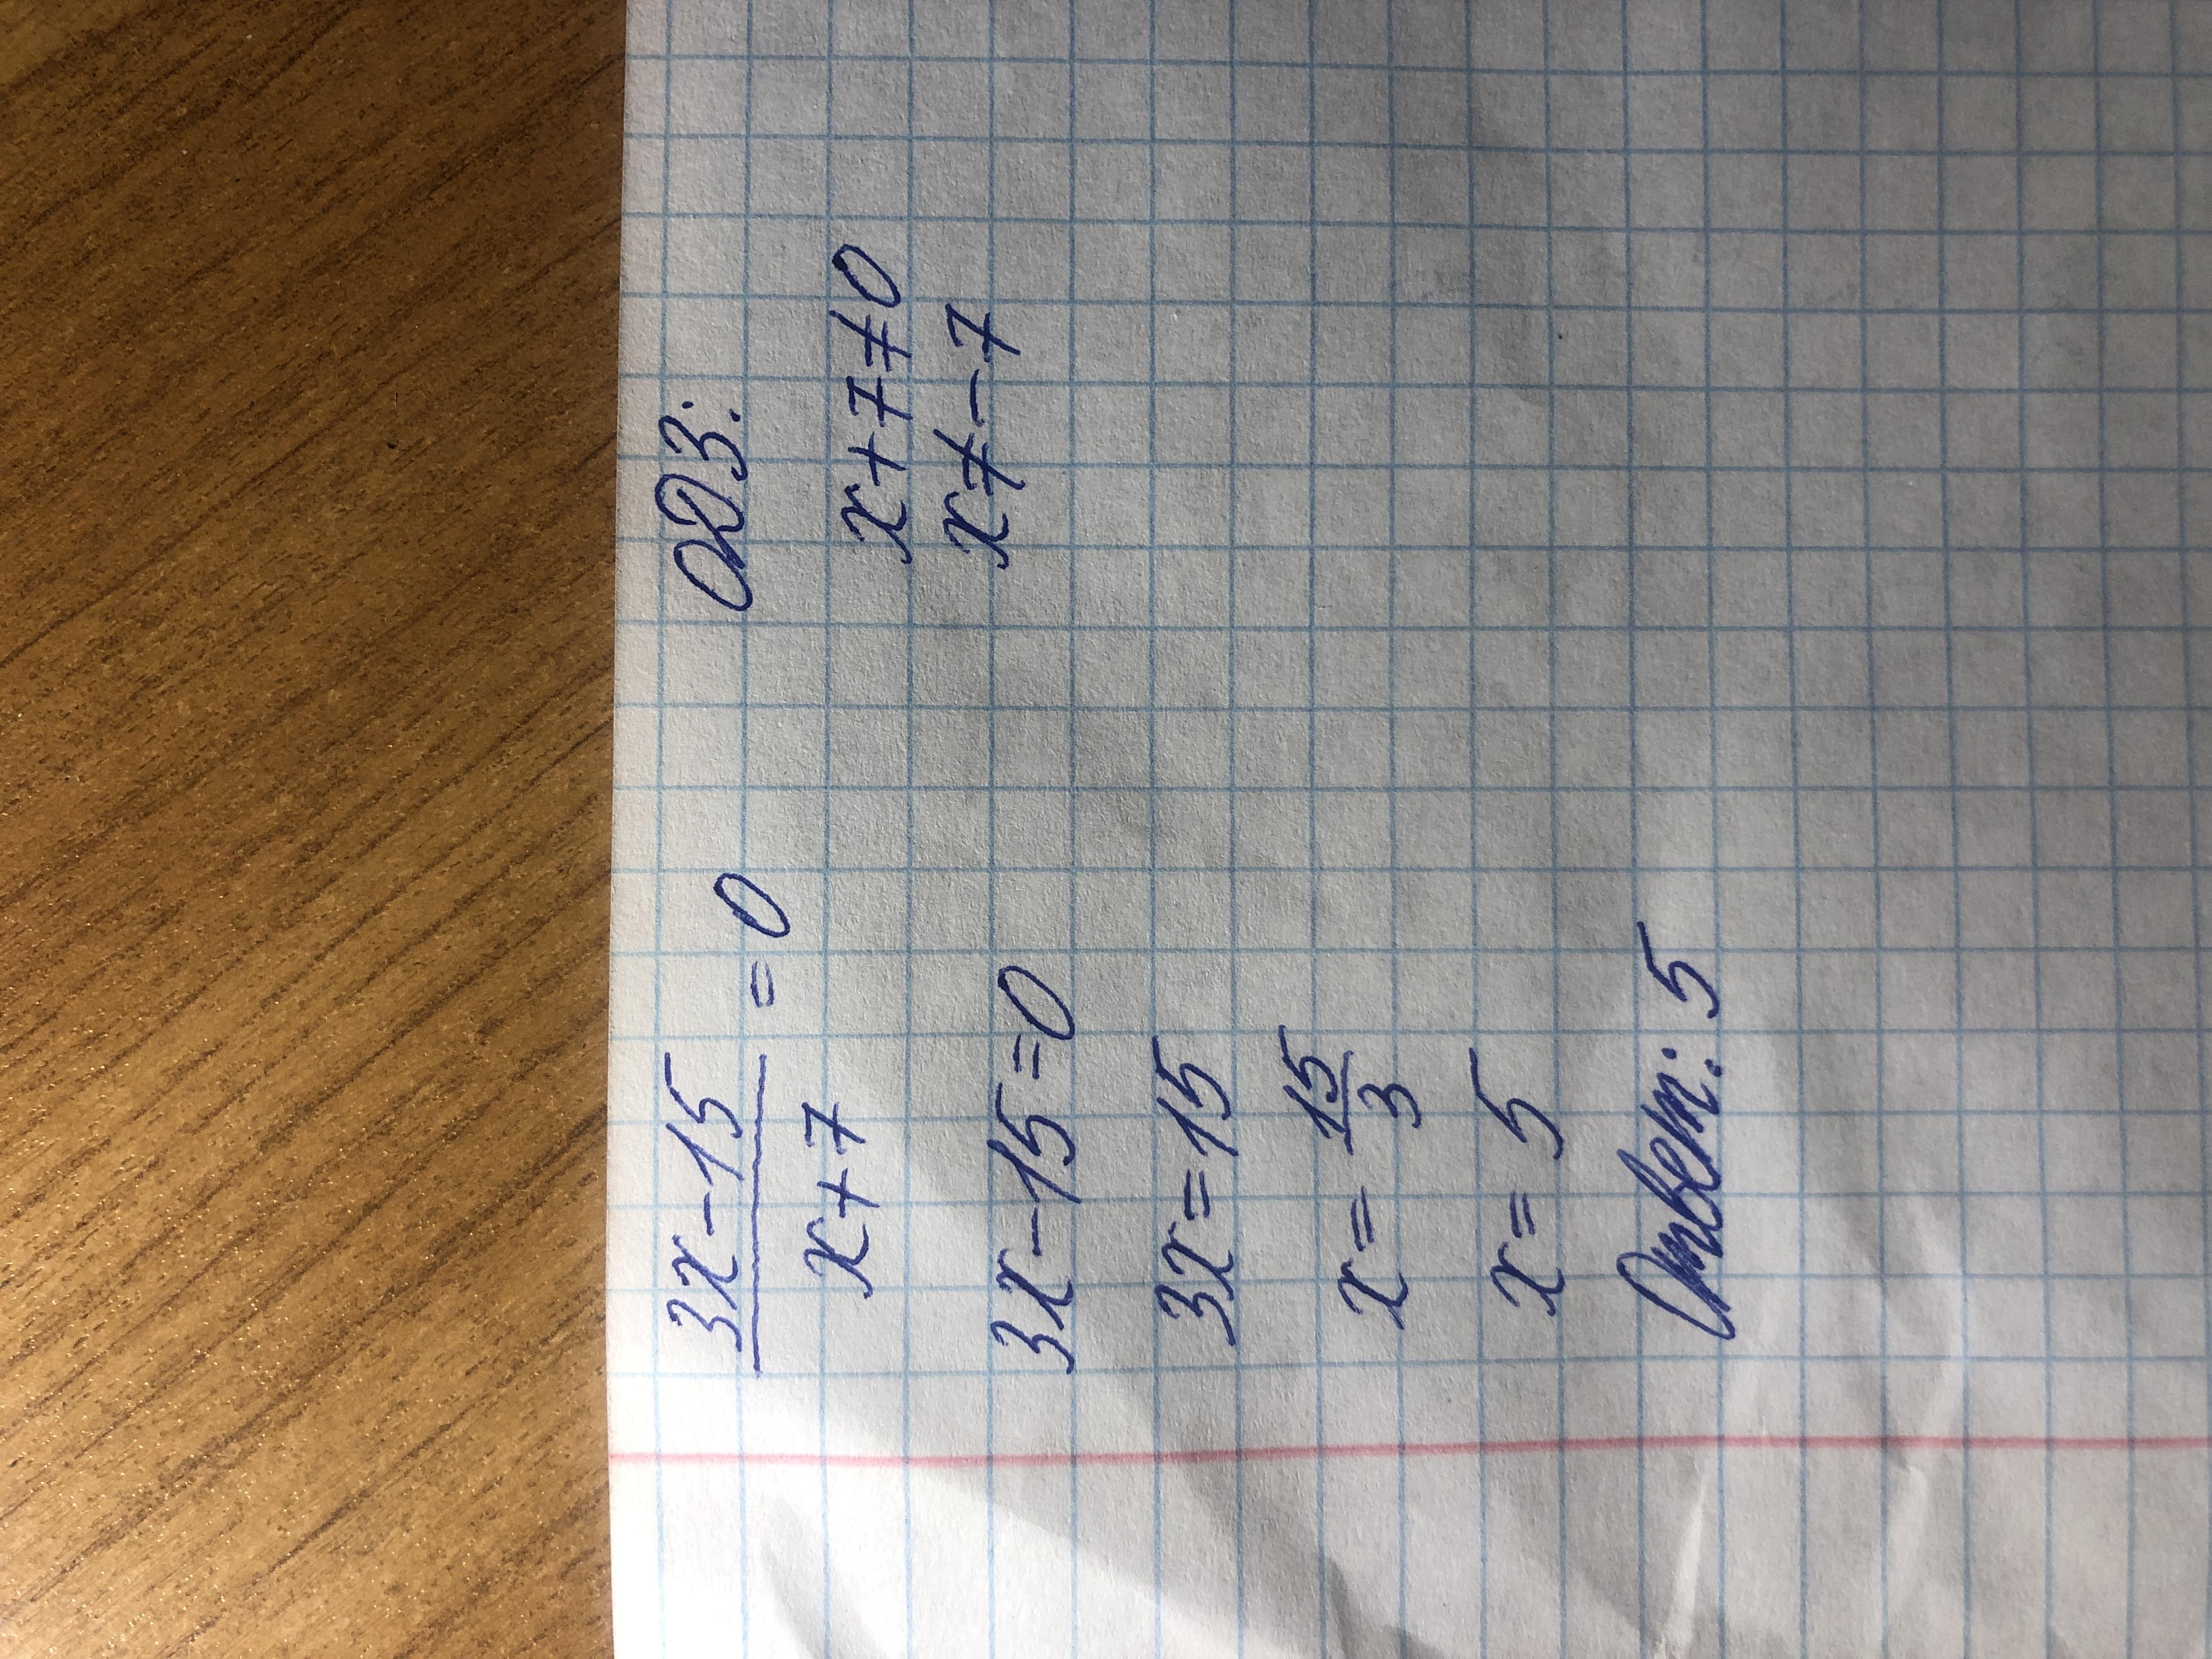 3x-15
——— = 0
x+7
3x-15=0
3x=15
x= 15/3
x= 5
Ответ: 5
ОДЗ:
x+7≠0
x≠-7